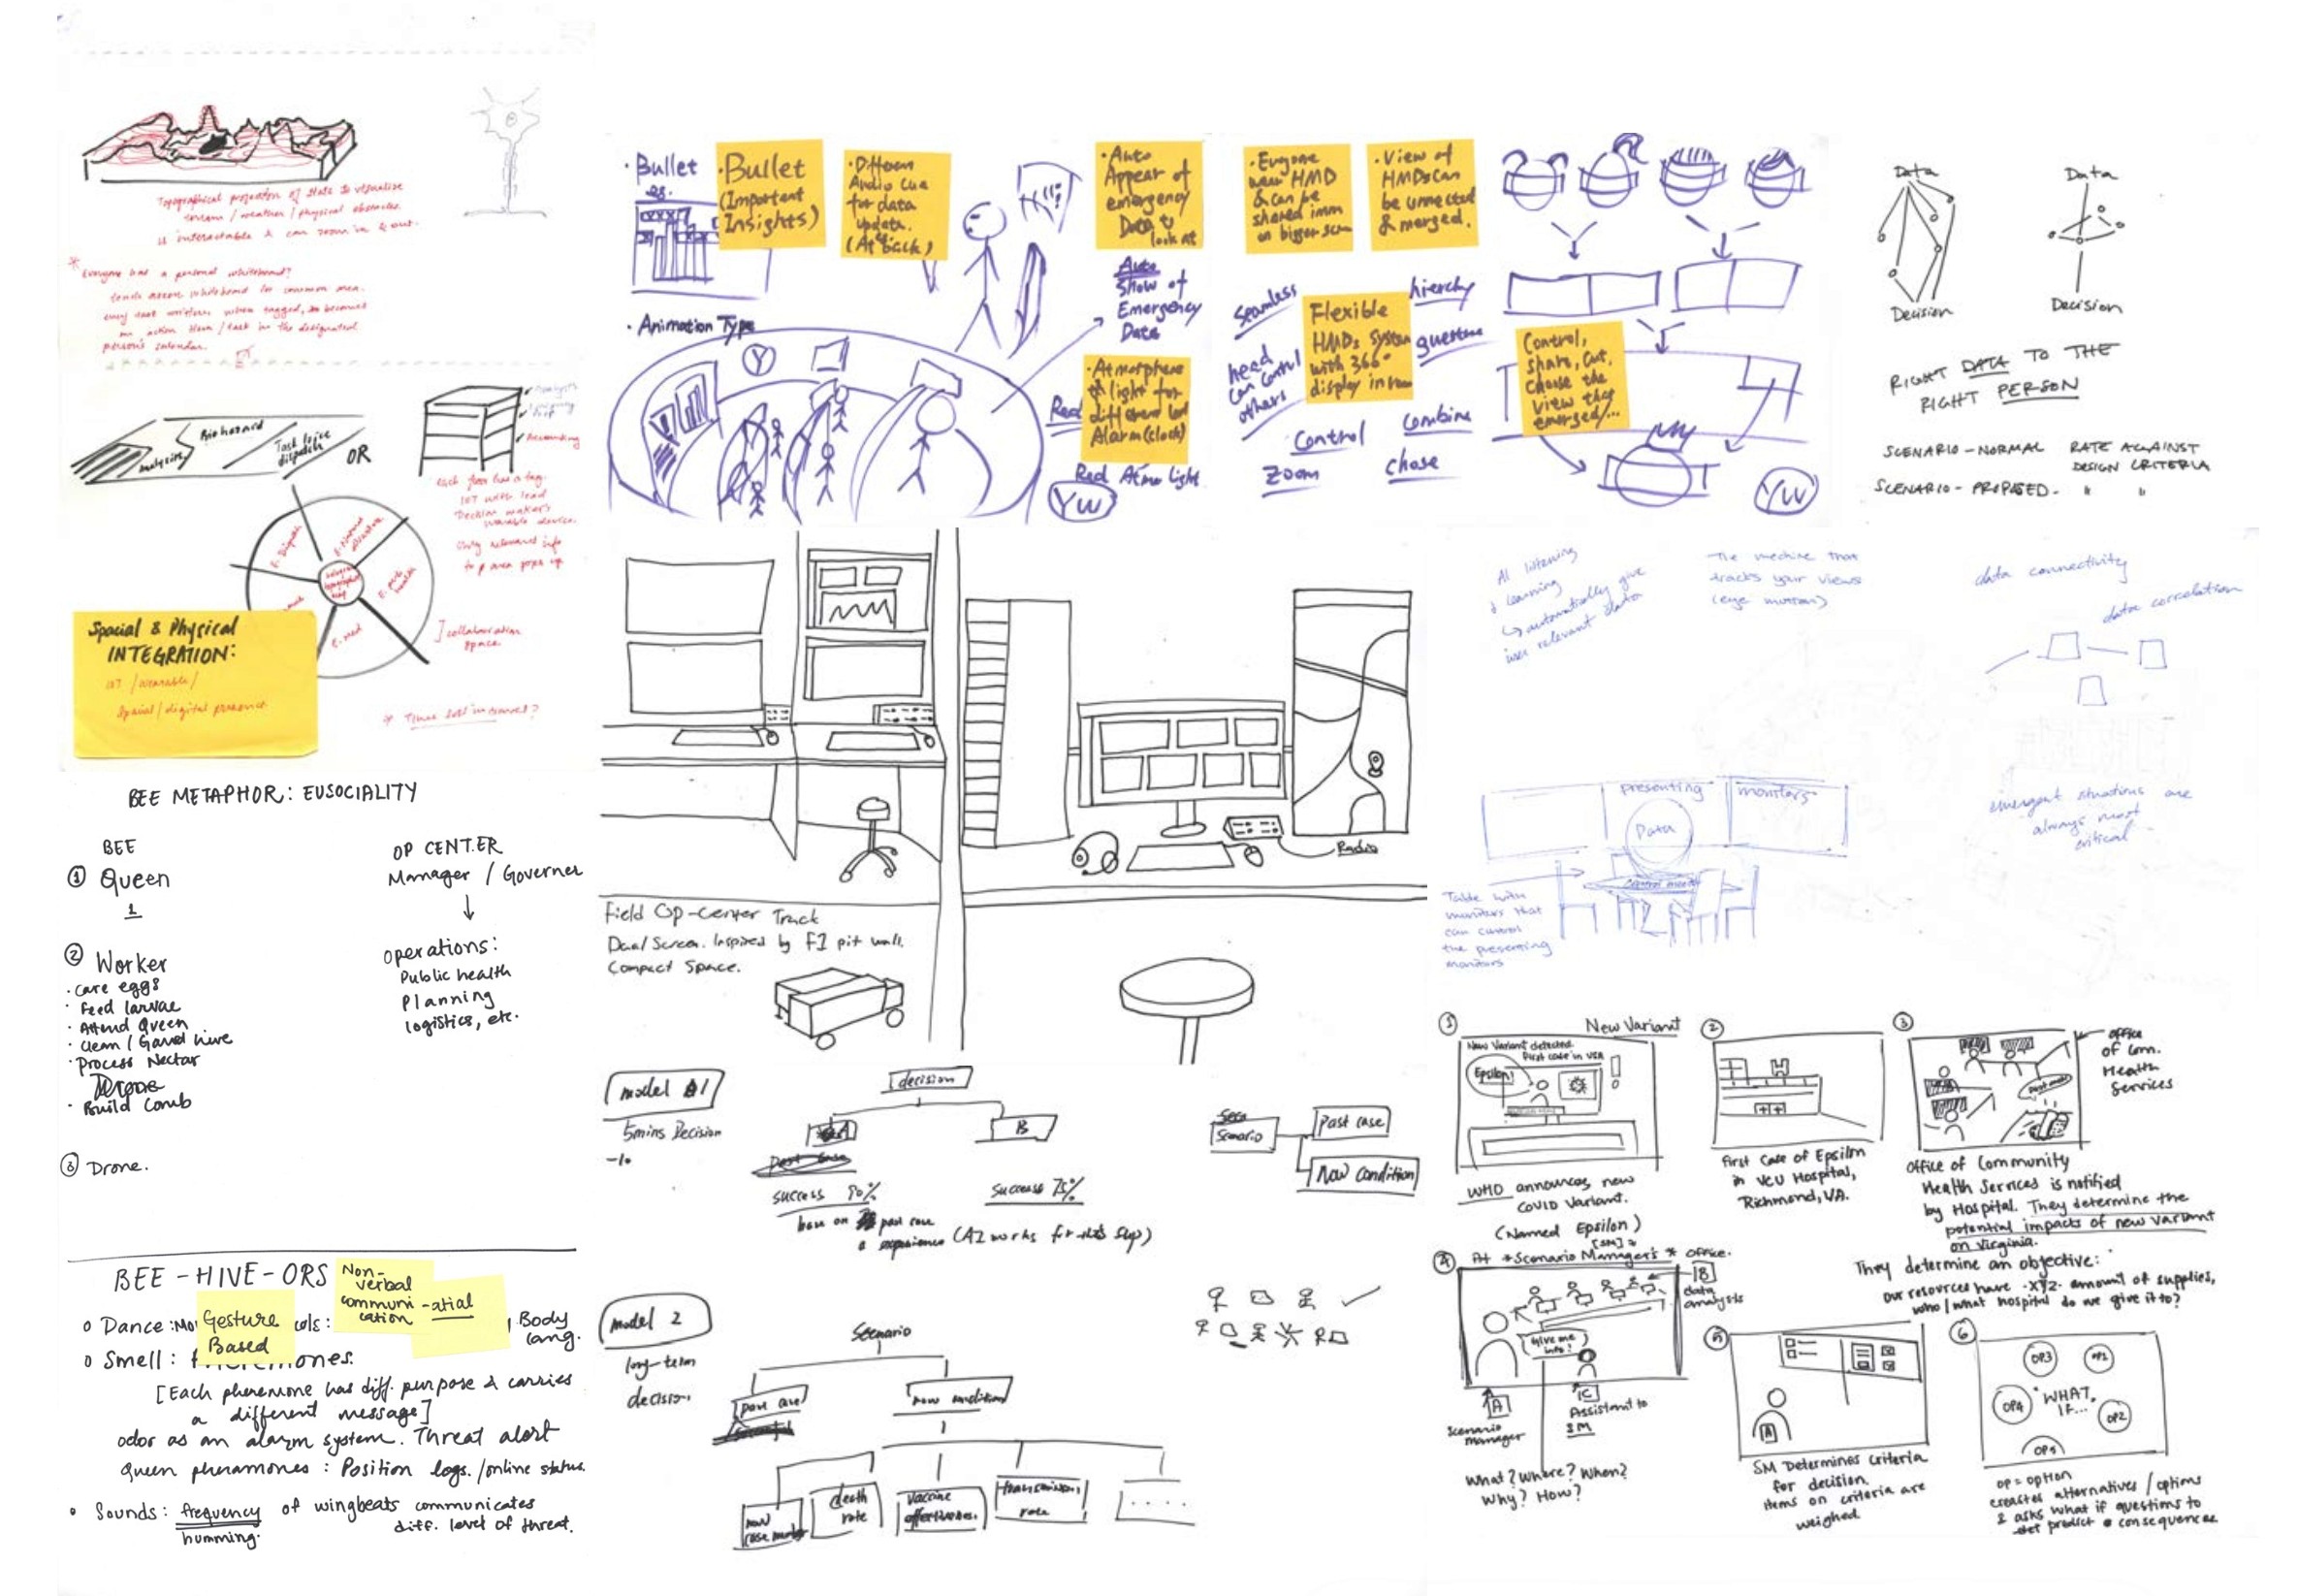 Topographical projection of state to visualize
terrain / weather / physical obstacles.
is interactable & can zoom in & out.
* Everyone has a personal whiteboard?
person's calendar.
analysing
Biohazard
Task force
dispatch
OR
each floor has a tag.
IOT with lead
Decision maker's
wearable device.
Only relevant info
to p area pops up
E. med
collaboration
space.
Spacial & Physical
INTEGRATION:
IOT / wearable /
Spacial / digital presence.
* Time lost in travel?
BEE METAPHOR: EUSOCIALITY
BEE
① Queen
1
② Worker
· Care eggs
· Feed larvae
· Attend Queen
· Clean / Gaurd hive
· Process Nectar
Drone
· Build Comb
③ Drone.
OP CENTER
Manager / Governer
operations:
Public health
Planning
logistics, etc.
BEE-HIVE-ORS
Non-
verbal
communi
cation
-atial
o Dance:
Gesture
Based
Body
lang.
o Smell:
[Each pheremone has diff. purpose & carries
a different message]
odor as an alarm system. Threat alert
Queen pheramones : Position logs. /online status.
o Sounds: frequency of wingbeats communicates
humming. diff. level of threat.
· Bullet
· Bullet
(Important
Insights)
· Different
Audio cue
for data
update.
(At back)
· Animation Type
Y
· Auto
Appear of
emergency
Data to
look at
Auto
Show of
Emergency
Data
· Atmosphere
light for
different
Alarm (clock)
Red
Red Atmo light
YW
· Everyone
wear HMD
& can be
shared
on bigger
· View of
HMDs can
be connected
& merged.
Seamless
hierchy
Flexible
HMDs System
with 360°
display in room
guesture
head
can control
others
Control
Zoom
combine
chose
Control,
share, cut,
choose the
view they
emerged/...
YW
Data
Decision
Data
Decision
RIGHT DATA TO THE
RIGHT PERSON
SCENARIO - NORMAL RATE AGAINST
DESIGN CRITERIA
SCENARIO - PROPOSED - " "
Radio
Field Op-Center Truck
Dual Screen. Inspired by F1 pit wall.
Compact Space.
AI listening
& learning
↳ automatically give
relevant data
The machine that
tracks your views
(eye motion)
data connectivity
data correlation
emergent situations are
always most
critical
presenting
monitors
Data
Control monitor
Table with
monitors that
can control
the presenting
monitors
model 1
5mins Decision
decision
B
success 90%
success 75%
base on past case
& experience (AI works for this step)
Scenario
Past case
Now condition
model 2
long-term
decision
Scenario
now condition
death
rate
vaccine
effectiveness.
transmission
rate
. . . .
① New Variant
New Variant detected.
First case in USA
Epsilon!
WHO announces new
COVID Variant.
(Named Epsilon)
②
First Case of Epsilon
in VCU Hospital,
Richmond, VA.
③
office
of Com.
Health
Services
Office of Community
Health Services is notified
by Hospital. They determine the
potential impacts of new variant
on Virginia.
They determine an objective:
our resources have XYZ amount of supplies,
who / what hospital do we give it to?
[SM]
④ At *Scenario Manager's* office.
B
data
analysts
Give me
info!
A
Scenario
manager
C
Assistant to
SM
What? Where? When?
Why? How?
⑤
A
SM Determines Criteria
for decision.
items on criteria are
weighed.
⑥
OP3
OP1
OP4
WHAT
IF...
OP2
OP5
OP = option
creates alternatives / options
& asks what if questions to
predict consequences